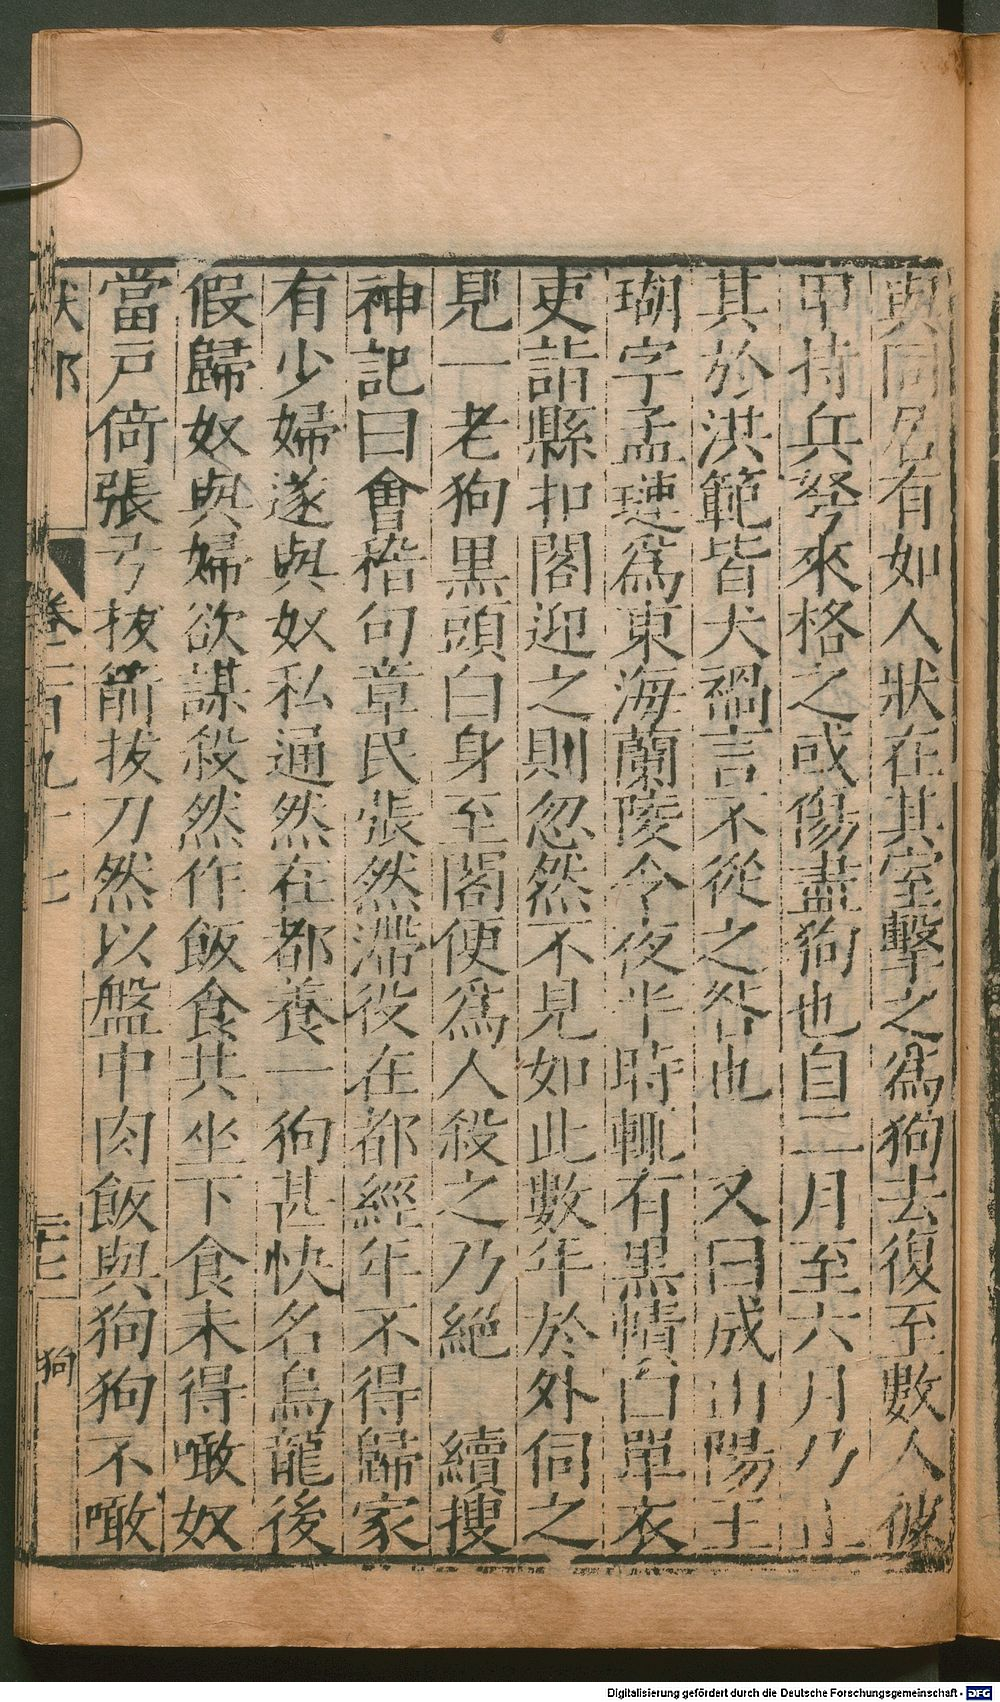 與同名有如人狀在其室擊之爲狗去復至數人被
甲持兵弩來格之或傷盡狗也自二月至六月乃止
其於洪範皆犬禍言不從之咎也　又曰成山陽王
瑚字孟璉爲東海蘭陵令夜半時輒有黑幘白單衣
吏詣縣扣閤迎之則忽然不見如此數年於外伺之
見一老狗黑頭白身至閤便爲人殺之乃絕　續搜
神記曰會稽句章民張然滯役在都經年不得歸家
有少婦遂與奴私通然在都養一狗甚快名烏龍後
假歸奴與婦欲謀殺然作飯食共坐下食未得噉奴
當戶倚張弓拔箭拔刀然以盤中肉飯與狗狗不噉
狀部
卷一百九十七
狗
Digitalisierung gefördert durch die Deutsche Forschungsgemeinschaft - DFG